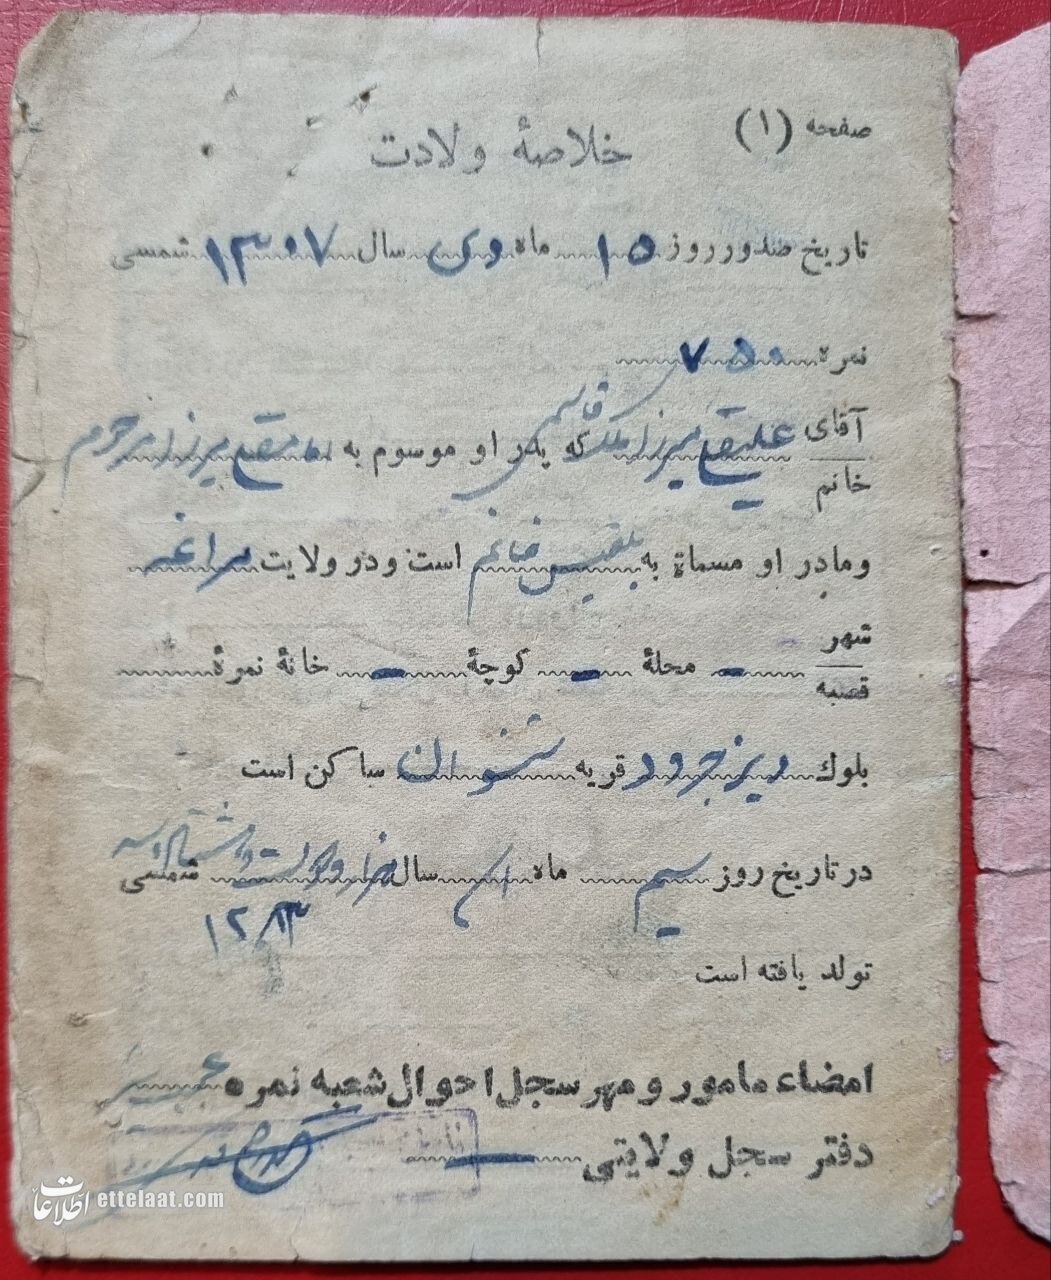 صفحه (۱)
خلاصهٔ ولادت
تاریخ صدور روز ۱۵ ماه دی سال ۱۳۰۷ شمسی
نمره ۷۵۰
قاسمی
آقای علینقی میرزا ملک که پدر او موسوم به میرزا مرحوم
خانم
و مادر او مسماة به بلقیس خانم است و در ولایت مراغه
شهر
قصبه — محلهٔ — کوچهٔ — خانهٔ نمرهٔ
بلوك دیزجرود قریه ساکن است
در تاریخ روز سیم ماه سال هزار و دویست و هشتاد و سه شمسی
۱۲۸۳
تولد یافته است
امضاء مامور و مهر سجل احوال شعبه نمره
دفتر سجل ولایتی —
اطلاعات ettelaat.com